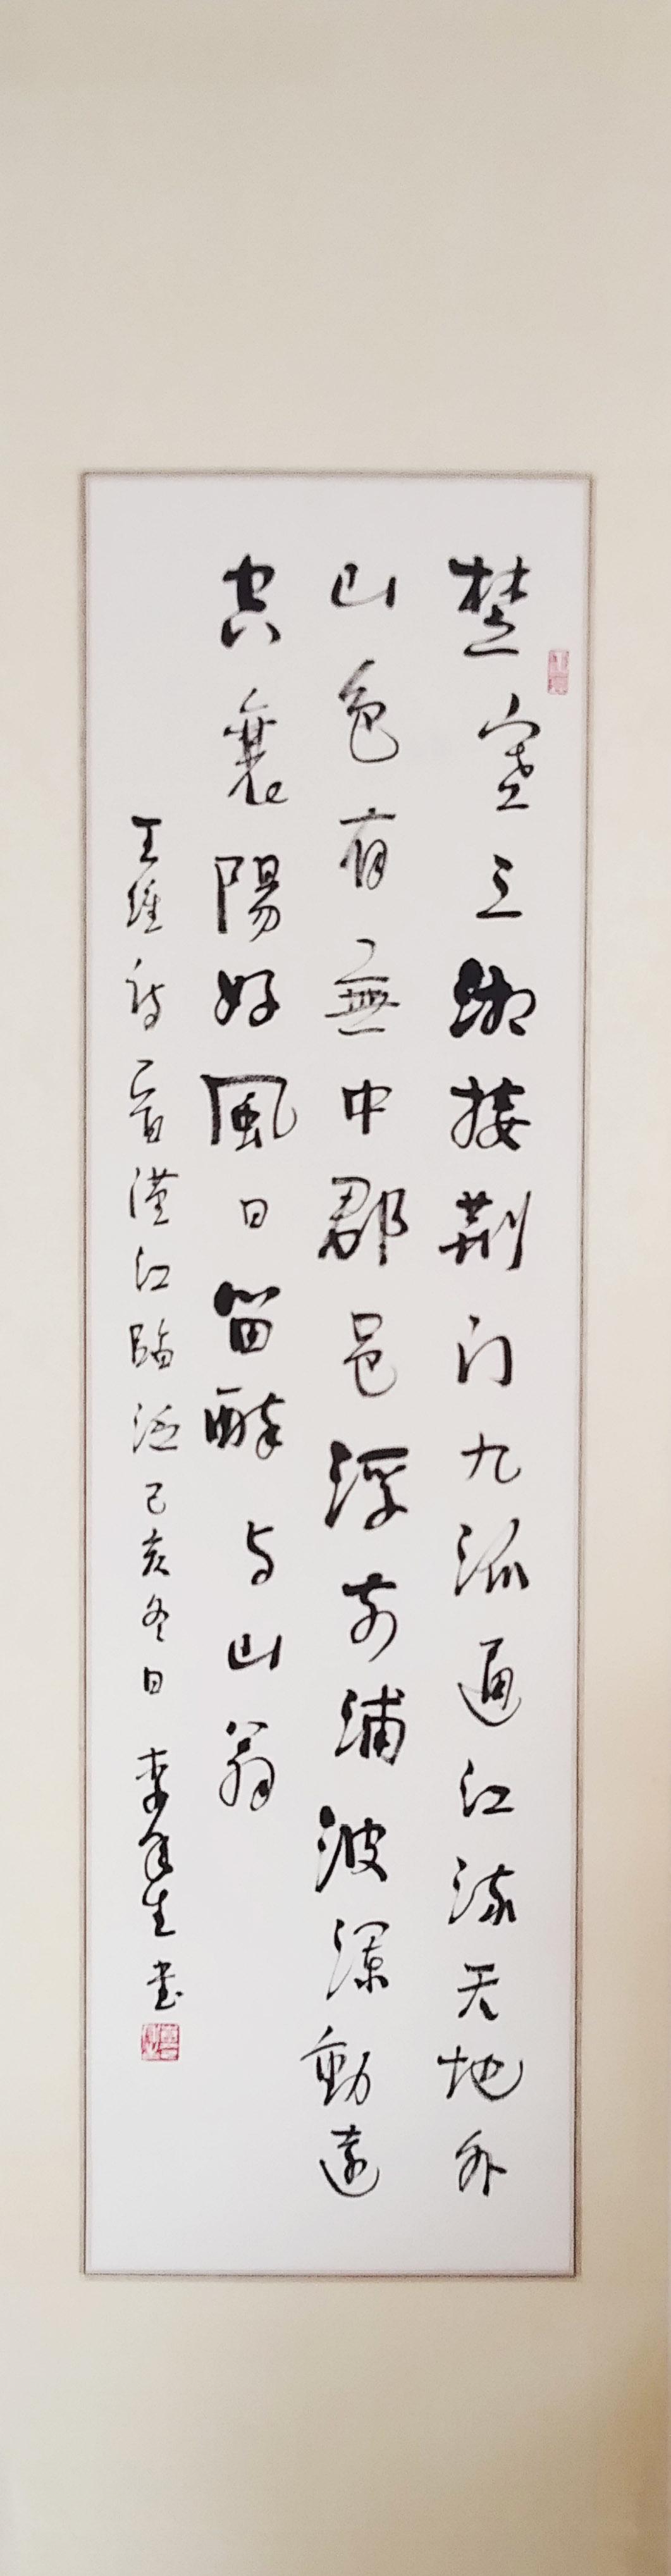 楚塞三湘接荆门九派通江流天地外
山色有無中郡邑浮前浦波瀾動遠
空襄陽好風日留醉与山翁
王維詩一首漢江臨泛己亥冬日李年生书